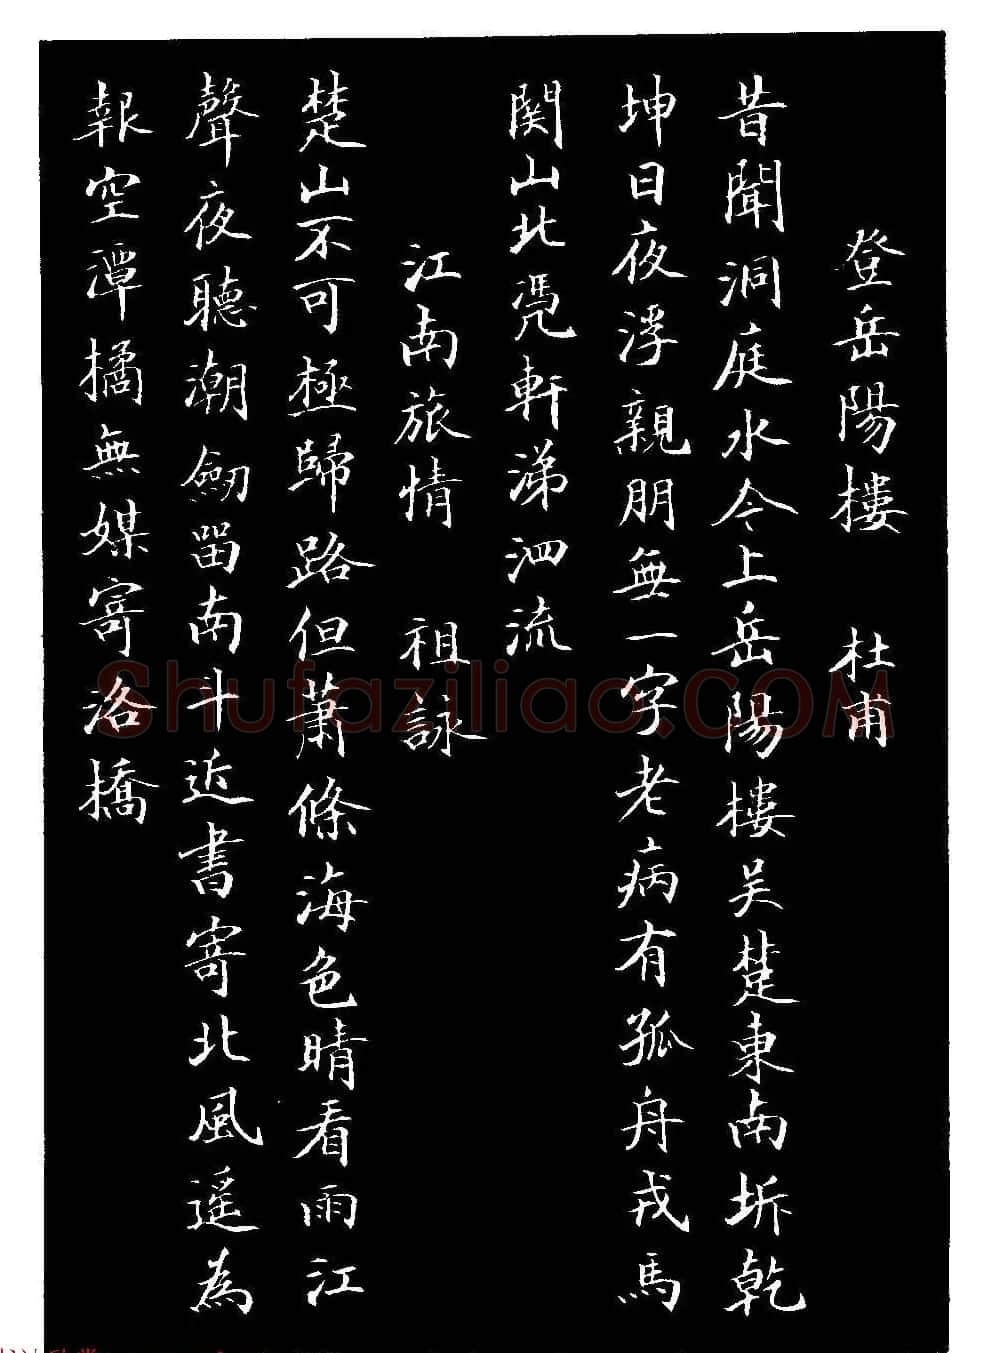 登岳陽樓 杜甫
昔聞洞庭水今上岳陽樓吴楚東南坼乾
坤日夜浮親朋無一字老病有孤舟戎馬
関山北凴軒涕泗流
江南旅情 祖詠
楚山不可極歸路但蕭條海色晴看雨江
聲夜聽潮劒留南斗近書寄北風遥為
報空潭橘無媒寄洛橋
Shufaziliao.COM